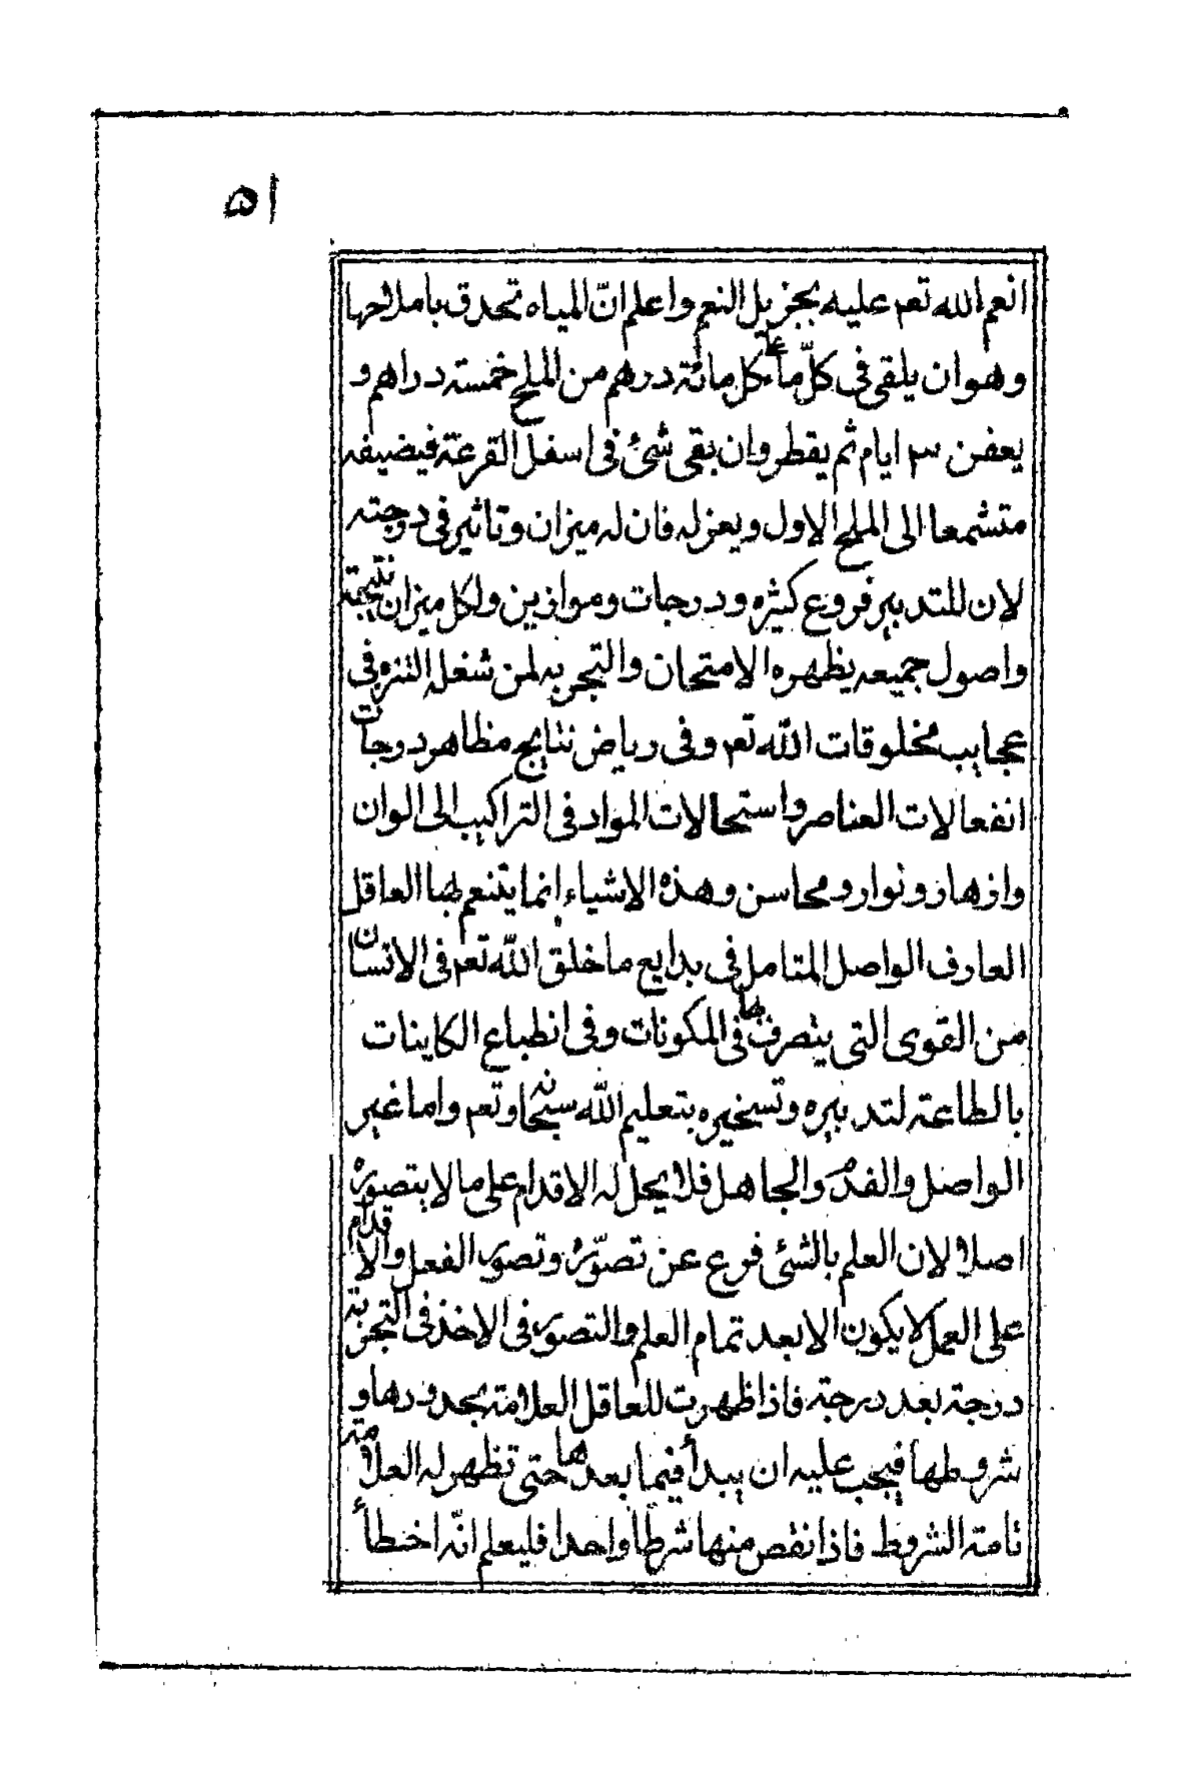 ٥١
انعم الله تعم عليه بجزيل النعم واعلم انّ المياه تحدق باملاحها
وهو ان يلقى فى كلّ ماء على كل مائة درهم من الملح خمسة دراهم و
يعفن ٣ ايام ثم يقطر وان بقى شئ فى اسفل القرعة فيضيفه
متشمعا الى الملح الاول ويعزله فان له ميزان وتاثير فى درجته
لان للتدبير فروع كثيره ودرجات وموازين ولكل ميزان نتيجة
واصول جميعه يظهره الامتحان والتجربه لمن شغله التنزه فى
عجايب مخلوقات الله تعم وفى رياض نتايج مظاهر درجات
انفعالات العناصر واستحالات المواد فى التراكيب الى الوان
وازهار ونوار ومحاسن وهذه الاشياء انما يتنعم بها العاقل
العارف الواصل المتامل فى بدايع ما خلق الله تعم فى الانسان
من القوى التى يتصرف بها فى المكونات وفى انطباع الكاينات
بالطاعة لتدبيره وتسخيره بتعليم الله سبحانه وتعم واما غير
الواصل والفدم والجاهل فلا يحل له الاقدام على ما لا يتصوره
اصلا لان العلم بالشئ فرع عن تصوّره وتصور الفعل والاقدام
على العمل لا يكون الا بعد تمام العلم والتصور فى الاخذ فى التجربة
درجة بعد درجة فاذا ظهرت للعاقل العلامة بحدودها و
شروطها فيجب عليه ان يبدأ فيما بعدها حتى تظهر له العلامة
تامة الشروط فاذا نقص منها شرطا واحدا فليعلم انّه اخطأ